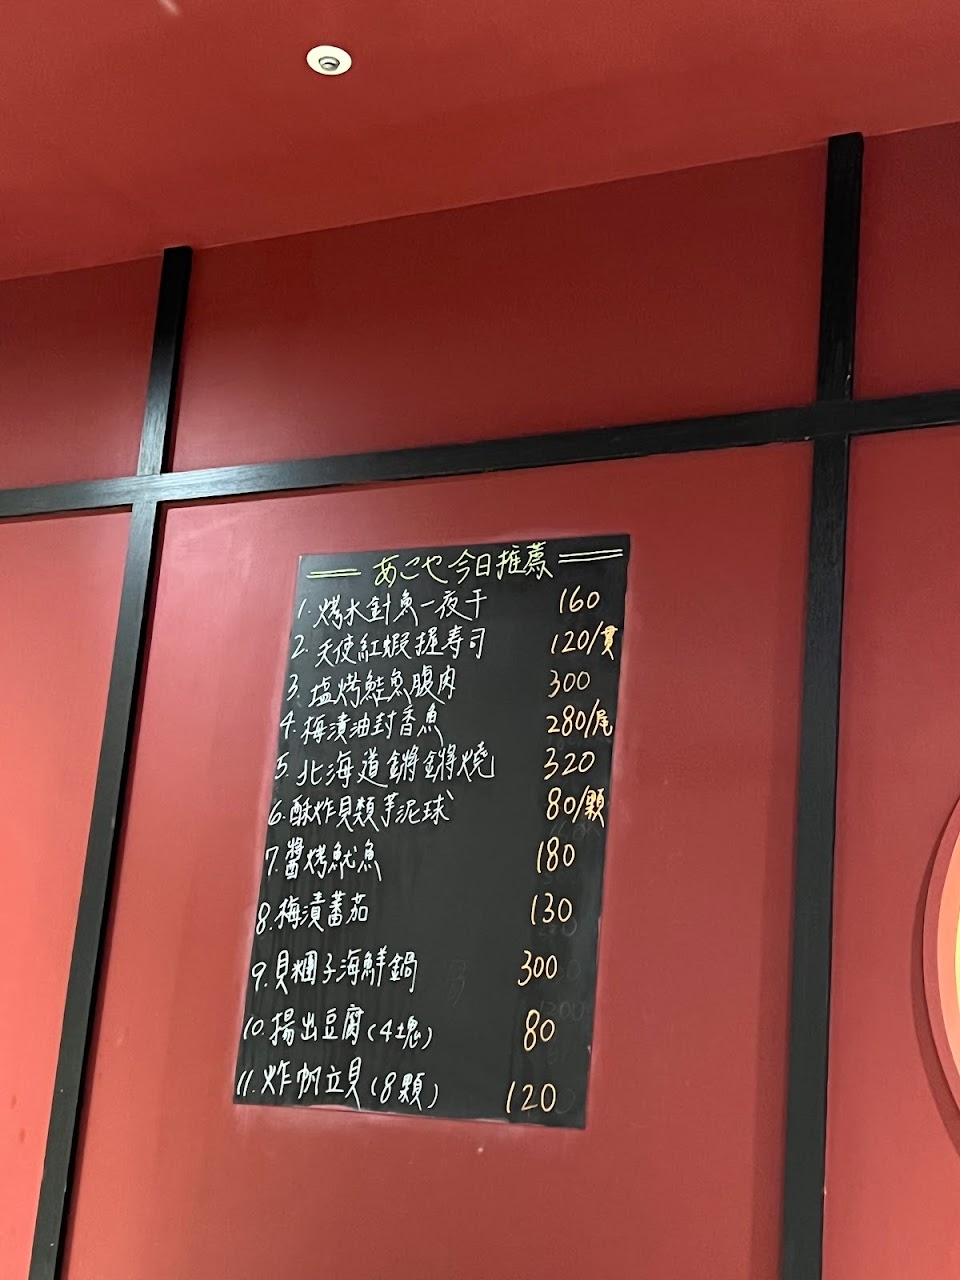 あこや今日推薦
1. 烤水針魚一夜干 160
2. 天使紅蝦握寿司 120/貫
3. 塩烤鮭魚腹肉 300
4. 梅漬油封香魚 280/尾
5. 北海道鏘鏘燒 320
6. 酥炸貝類芋泥球 80/顆
7. 醬烤魷魚 180
8. 梅漬蕃茄 130
9. 貝糰子海鮮鍋 300
10. 揚出豆腐(4塊) 80
11. 炸帆立貝(8顆) 120